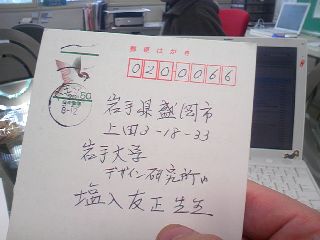 郵便はがき
0200066
50
岩手県盛岡市
上田3-18-33
岩手大学
デザイン研究所内
塩入友正先生